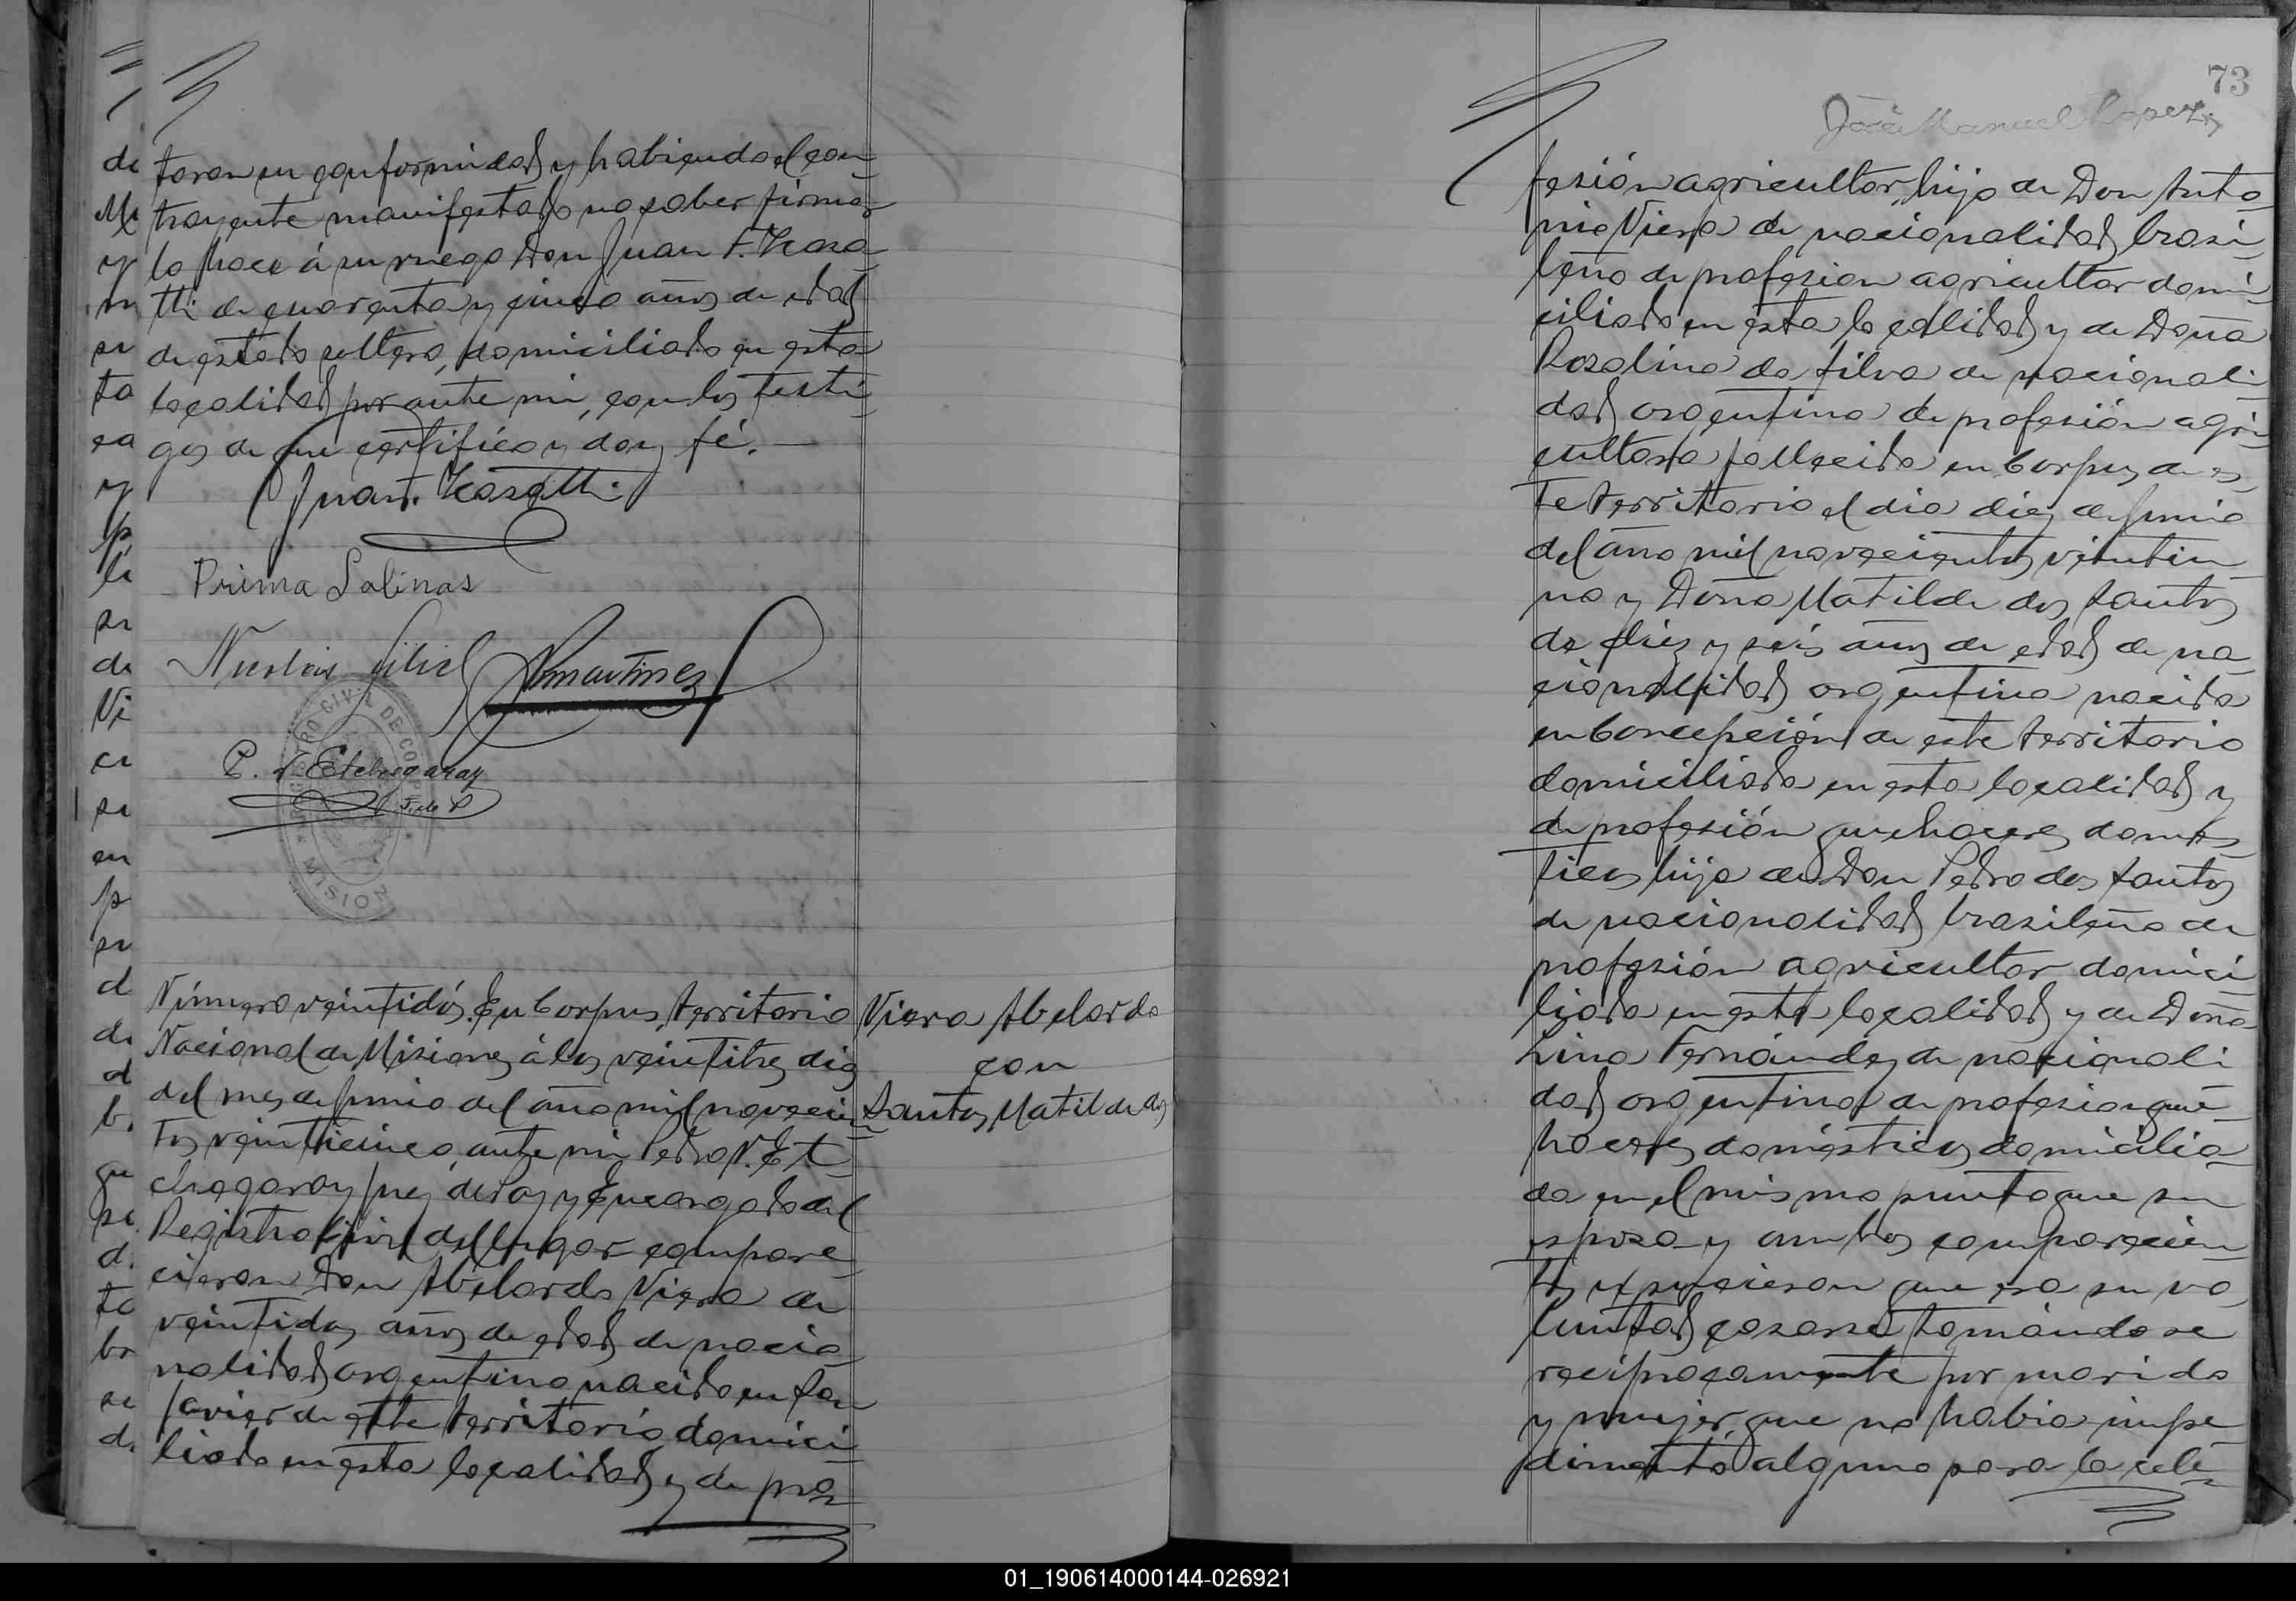 taron en conformidad y habiendo el con-
trayente manifestado no saber firmar
lo hace á su ruego Don Juan F.
de cuarenta y cinco años de edad
de estado soltero, domiciliado en esta
localidad por ante mi, con los testi-
gos de que certifico y doy fé.
Juan F.
Prima Salinas
Nicolás
Martinez
P. N. Etchegaray
Juez P
REGISTRO CIVIL DE CORPUS
MISIONES
Número veintidós. En Corpus, territorio
Nacional de Misiones á los veintitres dias
del mes de Junio del año mil novecien-
tos veinticinco, ante mi Pedro N. Et
chegaray Juez de Paz y Encargado del
Registro Civil del lugar compare-
cieron Don Abelardo Viera de
veintidos años de edad de nacio-
nalidad argentino nacido en San
Javier de este territorio domici-
liado en esta localidad y de pro-
Viera Abelardo
con
Santos Matilde dos
73
José Manuel Lopez
fesión agricultor, hijo de Don Anto-
nio Viera de nacionalidad brasi-
leño de profesion agricultor domi-
ciliado en esta localidad y de Doña
Rosalina da Silva de nacionali-
dad argentina de profesión agri-
cultora fallecida en Corpus de es-
te territorio el dia diez de Junio
del año mil novecientos veintiu-
no y Doña Matilde dos Santos
de diez y seis años de edad de na-
cionalidad argentina nacida
en Concepción de este territorio
domiciliada en esta localidad y
de profesión quehaceres domés-
ticos hija de Don Pedro dos Santos
de nacionalidad brasileño de
profesión agricultor domici-
liado en esta localidad y de Doña
Lina Fernández de nacionali-
dad argentina de profesion que-
haceres domésticos domicilia-
da en el mismo punto que su
esposo y ambos comparecien-
tes expusieron que era su vo-
luntad casarse tomándose
reciprocamente por marido
y mujer, que no habia impe-
dimento alguno para la cele-
01_190614000144-026921